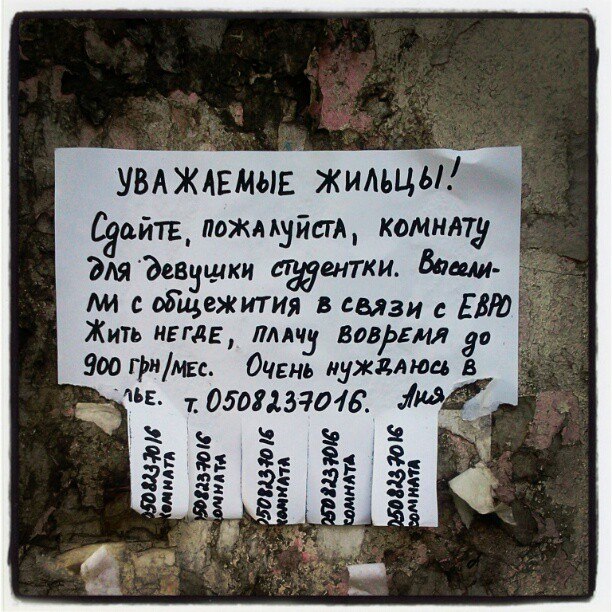 УВАЖАЕМЫЕ ЖИЛЬЦЫ!
Сдайте, пожалуйста, комнату
для девушки студентки. Высели-
ли с общежития в связи с ЕВРО
Жить негде, плачу вовремя до
900 грн/мес. Очень нуждаюсь в
лье. т. 0508237016. Аня
0508237016
комната
0508237016
комната
0508237016
комната
0508237016
комната
0508237016
комната